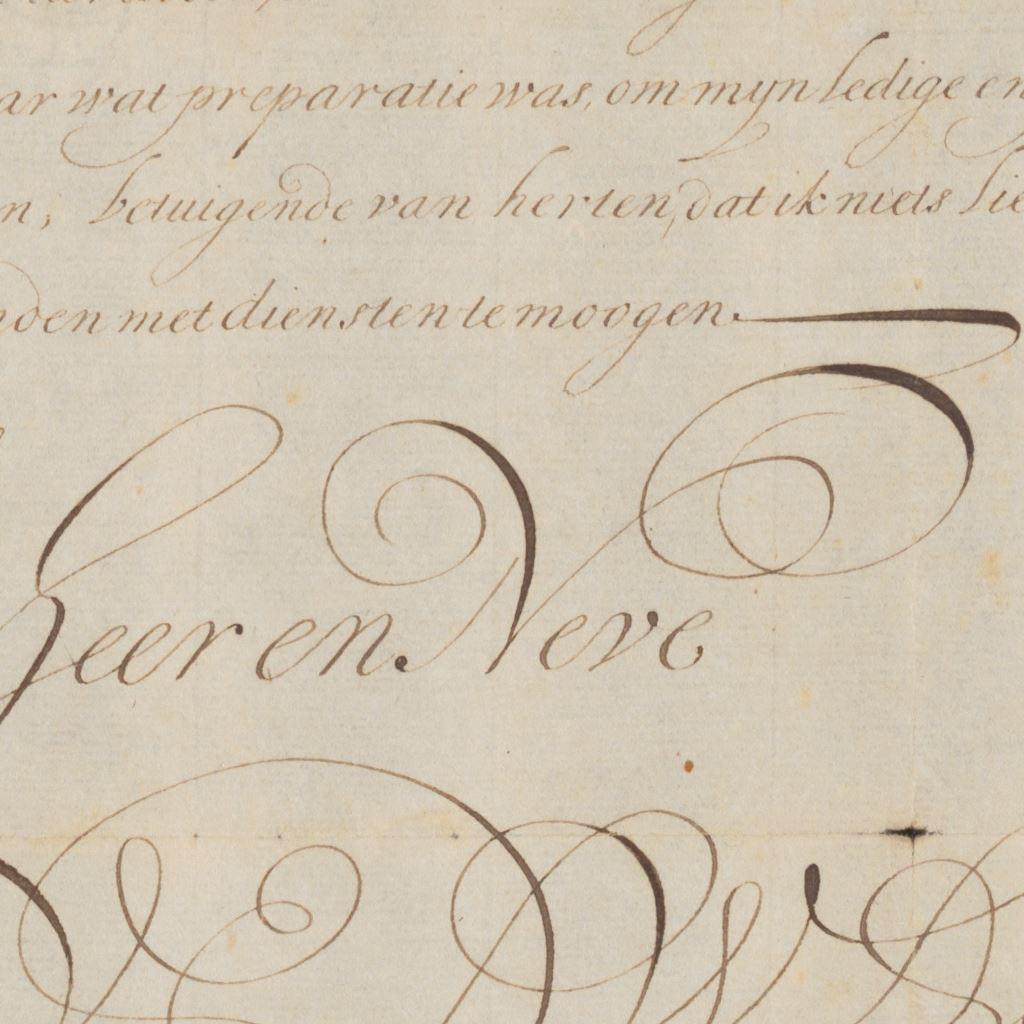 ar wat preparatie was, om myn ledige en
n, betuigende van herten, dat ik niets lie
nden met diensten te moogen.
Heer en Neve